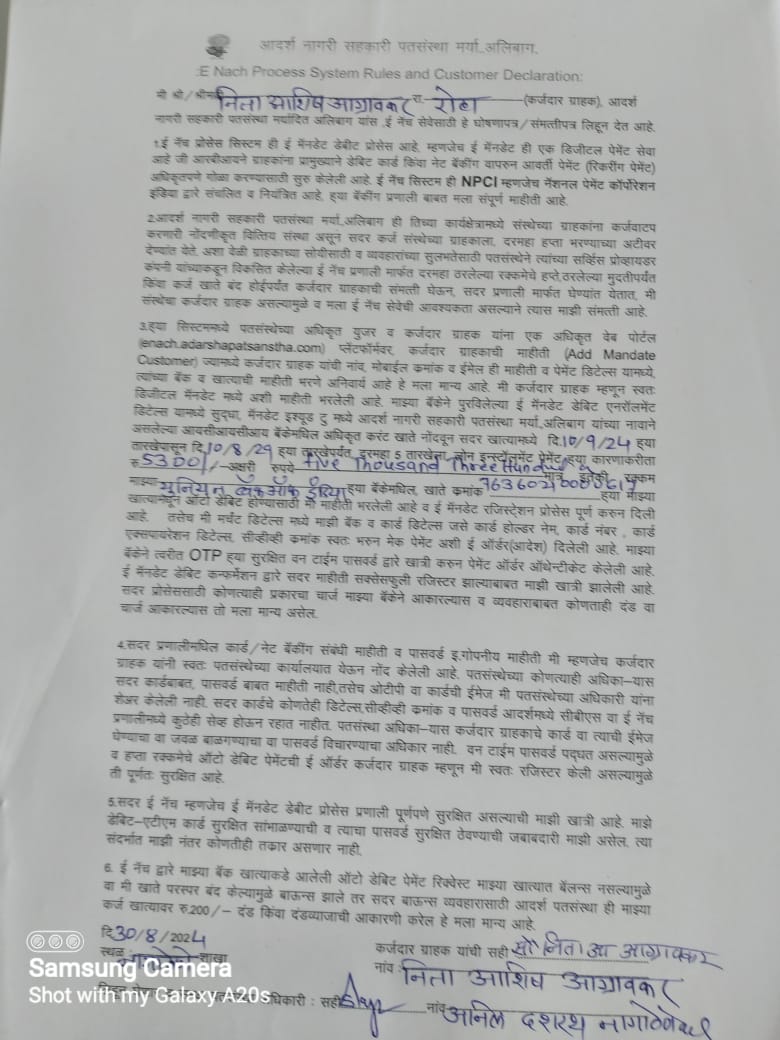 आदर्श नागरी सहकारी पतसंस्था मर्या.,अलिबाग.
:E Nach Process System Rules and Customer Declaration:
मी श्री/श्रीमती निता आशिष आग्रावकर रा. रोहा (कर्जदार ग्राहक), आदर्श
नागरी सहकारी पतसंस्था मर्यादित अलिबाग यांस ,ई नॅच सेवेसाठी हे घोषणापत्र/संमत्तीपत्र लिहून देत आहे.
1.ई नॅच प्रोसेस सिस्टम ही ई मॅनडेट डेबीट प्रोसेस आहे. म्हणजेच ई मॅनडेट ही एक डिजीटल पेमेंट सेवा
आहे जी आरबीआयने ग्राहकांना प्रामुख्याने डेबिट कार्ड किंवा नेट बँकींग वापरुन आवर्ती पेमेंट (रिकरींग पेमेंट)
अधिकृतपणे गोळा करण्यासाठी सुरु केलेली आहे. ई नॅच सिस्टम ही NPCI म्हणजेच नॅशनल पेमेंट कॉर्पोरेशन
इंडिया द्वारे संचलित व नियंत्रित आहे. ह्या बँकींग प्रणाली बाबत मला संपूर्ण माहीती आहे.
2.आदर्श नागरी सहकारी पतसंस्था मर्या.अलिबाग ही तिच्या कार्यक्षेत्रामध्ये संस्थेच्या ग्राहकांना कर्जवाटप
करणारी नोंदणीकृत वित्तिय संस्था असून सदर कर्ज संस्थेच्या ग्राहकाला, दरमहा हप्ता भरण्याच्या अटीवर
देण्यांत येते. अशा वेळी ग्राहकाच्या सोयीसाठी व व्यवहारांच्या सुलभतेसाठी पतसंस्थेने त्यांच्या सर्व्हिस प्रोव्हायडर
कंपनी यांच्याकडून विकसित केलेल्या ई नॅच प्रणाली मार्फत दरमहा ठरलेल्या रक्कमेचे हप्ते,ठरलेल्या मुदतीपर्यंत
किंवा कर्ज खाते बंद होईपर्यंत कर्जदार ग्राहकाची संमत्ती घेऊन, सदर प्रणाली मार्फत घेण्यांत येतात, मी
संस्थेचा कर्जदार ग्राहक असल्यामुळे व मला ई नॅच सेवेची आवश्यकता असल्याने त्यास माझी संमत्ती आहे.
3.ह्या सिस्टममध्ये पतसंस्थेच्या अधिकृत युजर व कर्जदार ग्राहक यांना एक अधिकृत वेब पोर्टल
(enach.adarshapatsanstha.com) प्लॅटफॉर्मवर, कर्जदार ग्राहकाची माहीती (Add Mandate
Customer) ज्यामध्ये कर्जदार ग्राहक यांची नांव, मोबाईल क्रमांक व ईमेल ही माहीती व पेमेंट डिटेल्स यामध्ये,
त्यांच्या बँक व खात्याची माहीती भरणे अनिवार्य आहे हे मला मान्य आहे. मी कर्जदार ग्राहक म्हणून स्वतः
डिजीटल मॅनडेट मध्ये अशी माहीती भरलेली आहे. माझ्या बँकेने पुरविलेल्या ई मॅनडेट डेबिट एनरॉलमेंट
डिटेल्स यामध्ये सुद्धा, मॅनडेट इश्यूड टु मध्ये आदर्श नागरी सहकारी पतसंस्था मर्या.अलिबाग यांच्या नावाने
असलेल्या आयसीआयसीआय बँकेमधिल अधिकृत करंट खाते नोंदवून सदर खात्यामध्ये दि.10/9/24 ह्या
तारखेपासून दि.10/8/29 ह्या तारखेपर्यंत, दरमहा 5 तारखेला, लोन इन्स्टॉलमेंट पेमेंट ह्या कारणाकरीता
रु.5300/- अक्षरी रुपये Five Thousand Three Hundred मात्र रक्कम
माझ्या युनियन बँक ऑफ इंडिया ह्या बँकेमधिल, खाते क्रमांक ह्या माझ्या
खात्यामधून ऑटो डेबिट होण्यासाठी मी माहीती भरलेली आहे व ई मॅनडेट रजिस्ट्रेशन प्रोसेस पूर्ण करुन दिली
आहे. तसेच मी मर्चंट डिटेल्स मध्ये माझी बँक व कार्ड डिटेल्स जसे कार्ड होल्डर नेम, कार्ड नंबर , कार्ड
एक्सपायरेशन डिटेल्स, सीव्हीव्ही क्रमांक स्वतः भरुन मेक पेमेंट अशी ई ऑर्डर(आदेश) दिलेली आहे. माझ्या
बँकेने त्वरीत OTP ह्या सुरक्षित वन टाईम पासवर्ड द्वारे खात्री करुन पेमेंट ऑर्डर ऑथेन्टीकेट केलेली आहे.
ई मॅनडेट डेबिट कन्फर्मेशन द्वारे सदर माहीती सक्सेसफुली रजिस्टर झाल्याबाबत माझी खात्री झालेली आहे.
सदर प्रोसेससाठी कोणत्याही प्रकारचा चार्ज माझ्या बँकेने आकारल्यास व व्यवहाराबाबत कोणताही दंड वा
चार्ज आकारल्यास तो मला मान्य असेल.
4.सदर प्रणालीमधिल कार्ड/नेट बँकींग संबंधी माहीती व पासवर्ड इ.गोपनीय माहीती मी म्हणजेच कर्जदार
ग्राहक यांनी स्वतः पतसंस्थेच्या कार्यालयात येऊन नोंद केलेली आहे. पतसंस्थेच्या कोणत्याही अधिका–यास
सदर कार्डबाबत, पासवर्ड बाबत माहीती नाही,तसेच ओटीपी वा कार्डची ईमेज मी पतसंस्थेच्या अधिकारी यांना
शेअर केलेली नाही. सदर कार्डचे कोणतेही डिटेल्स,सीव्हीव्ही क्रमांक व पासवर्ड आदर्शमध्ये सीबीएस वा ई नॅच
प्रणालीमध्ये कुठेही सेव्ह होऊन रहात नाहीत. पतसंस्था अधिका–यास कर्जदार ग्राहकाचे कार्ड वा त्याची ईमेज
घेण्याचा वा जवळ बाळगण्याचा वा पासवर्ड विचारण्याचा अधिकार नाही. वन टाईम पासवर्ड पद्धत असल्यामुळे
व हप्ता रक्कमेचे ऑटो डेबिट पेमेंटची ई ऑर्डर कर्जदार ग्राहक म्हणून मी स्वतः रजिस्टर केली असल्यामुळे
ती पूर्णतः सुरक्षित आहे.
5.सदर ई नॅच म्हणजेच ई मॅनडेट डेबीट प्रोसेस प्रणाली पूर्णपणे सुरक्षित असल्याची माझी खात्री आहे. माझे
डेबिट-एटीएम कार्ड सुरक्षित सांभाळण्याची व त्याचा पासवर्ड सुरक्षित ठेवण्याची जबाबदारी माझी असेल. त्या
संदर्भात माझी नंतर कोणतीही तक्रार असणार नाही.
6. ई नॅच द्वारे माझ्या बँक खात्याकडे आलेली ऑटो डेबिट पेमेंट रिक्वेस्ट माझ्या खात्यात बॅलन्स नसल्यामुळे
वा मी खाते परस्पर बंद केल्यामुळे बाऊन्स झाले तर सदर बाऊन्स व्यवहारासाठी आदर्श पतसंस्था ही माझ्या
कर्ज खात्यावर रु.200/– दंड किंवा दंडव्याजाची आकारणी करेल हे मला मान्य आहे.
दि.30/8/2024
स्थळ शाखा
कर्जदार ग्राहक यांची सही सौ निता आ आग्रावकर
नांव : निता आशिष आग्रावकर
अधिकारी : सही नांव अनिल दशरथ नागोठणेकर
Samsung Camera
Shot with my Galaxy A20s